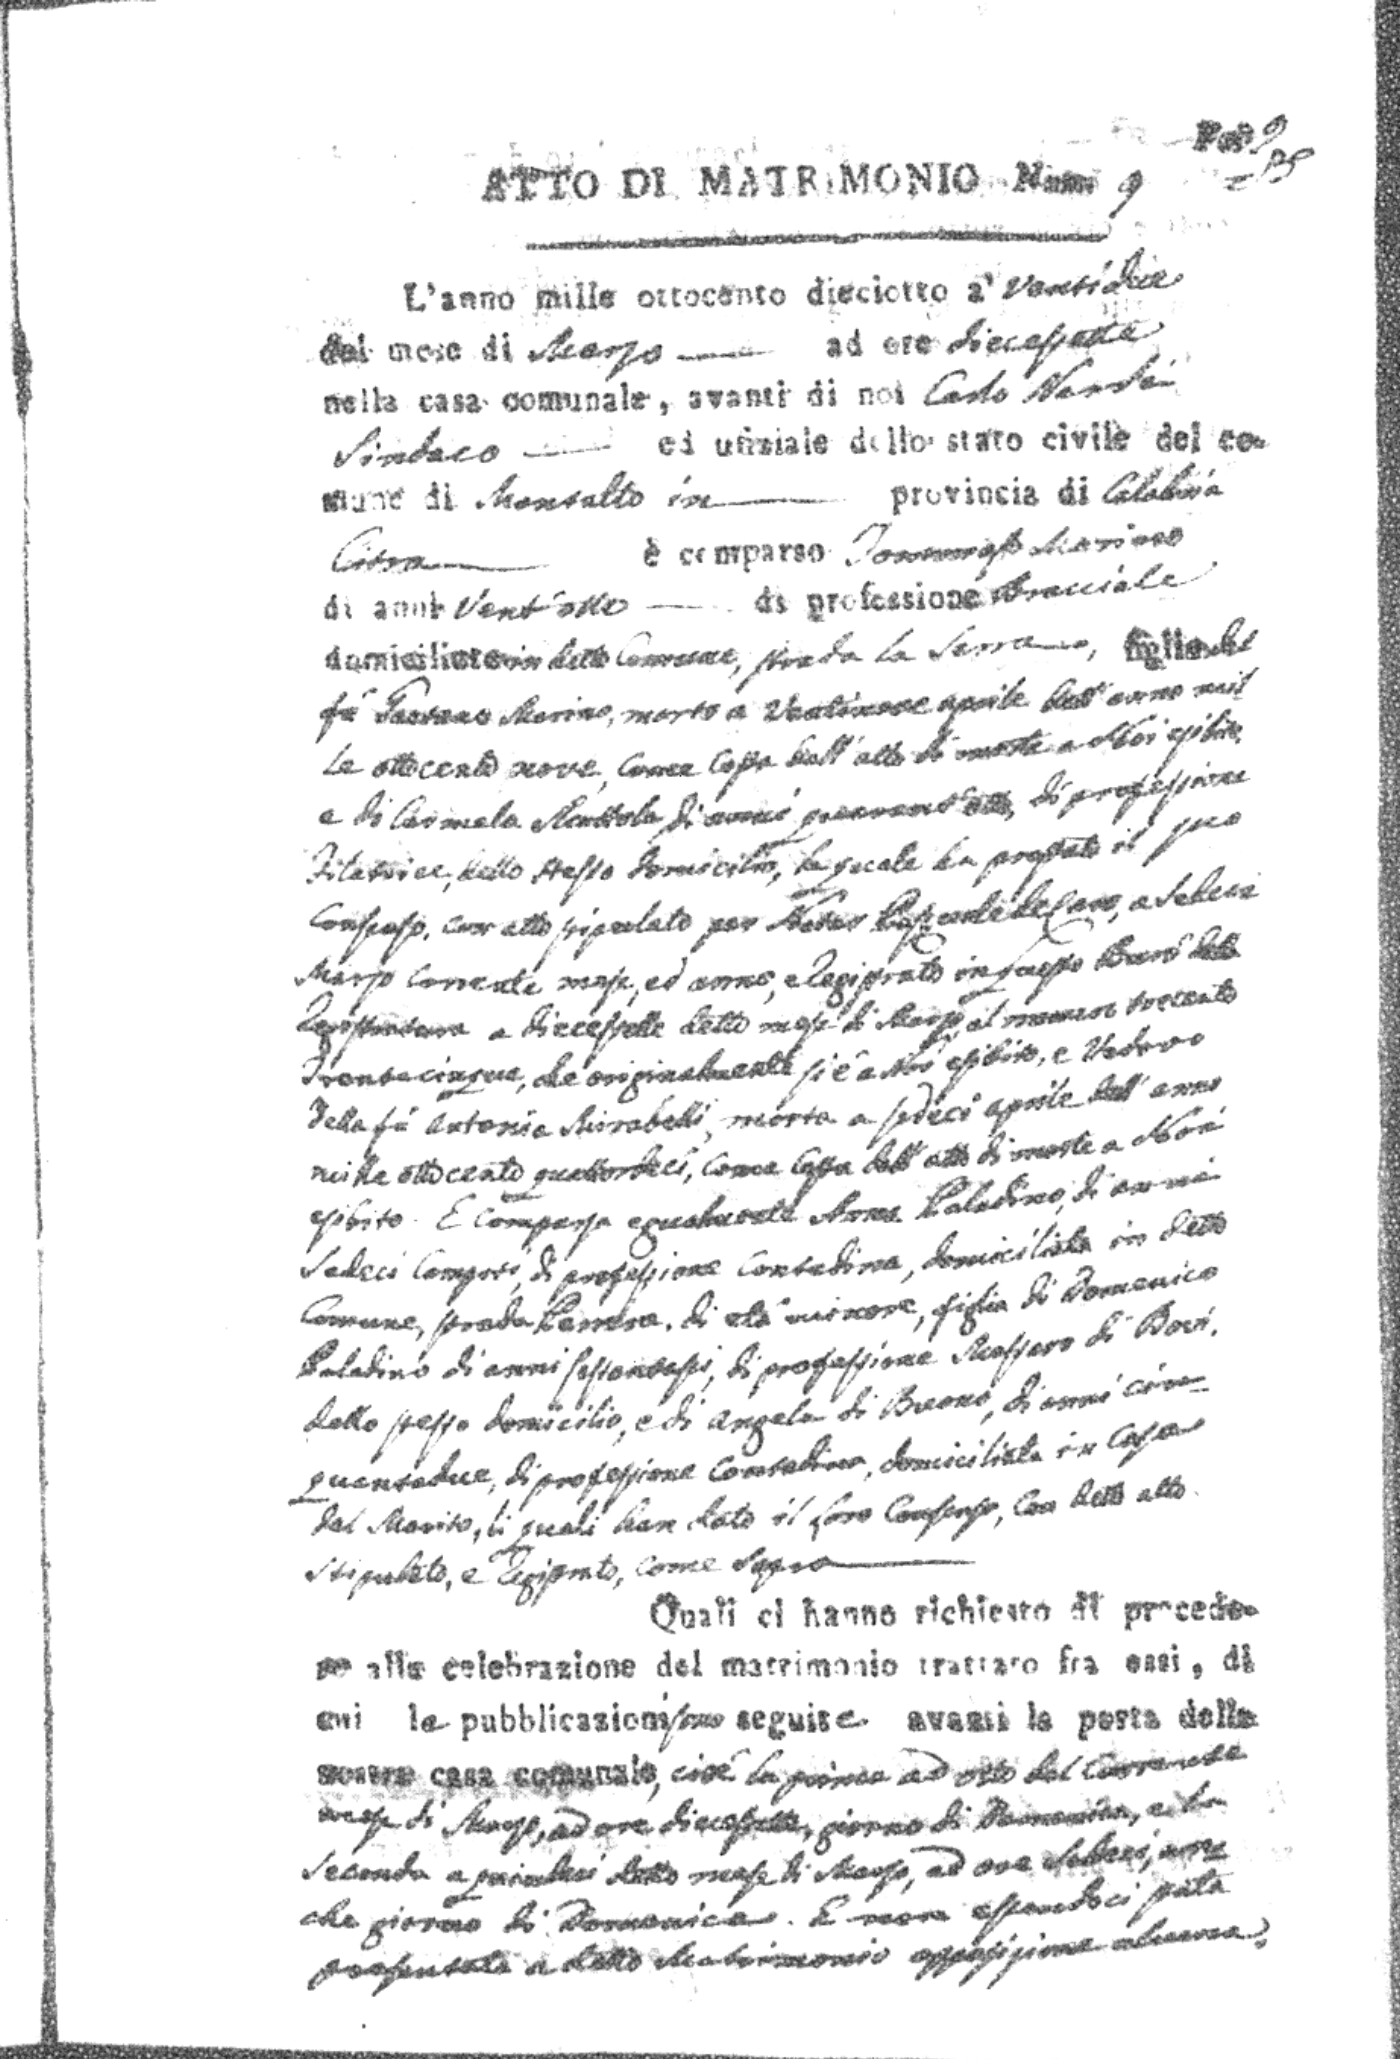 Fol 9
ATTO DI MATRIMONIO Num. 9
L'anno mille ottocento dieciotto a' Ventidue
del mese di Marzo ad ore diecessette
nella casa comunale, avanti di noi Carlo Nardi
Sindaco ed ufiziale dello stato civile del co-
mune di Montalto in provincia di Calabria
Citra è comparso Tommaso Marino
di anni Vent'otto di professione Bracciale
domiciliato in detto Comune, strada la Serra, figlio del
fù Gaetano Marino, morto a Ventinove aprile dell'anno mil
le ottocento nove, come costa dall'atto di morte a Noi esibito,
e di Carmela di anni quarant'otto, di professione
Filatrice, dello stesso domicilio, la quale ha prestato il suo
Consenso, con atto stipulato per Notar Pasquale de Caro, a Sedeci
Marzo corrente mese, ed anno, e Registrato in questo Burò della
Registratura a diecessette detto mese di Marzo, al numero trecento
Trentacinque, che originalmente si è a Noi esibito, e Vedovo
della fù Antonia Mirabelli, morta a sedeci aprile dell'anno
mille ottocento quattordeci, come costa dall'atto di morte a Noi
esibito. E comparsa egualmente Anna Paladino, di anni
Sedeci compiti, di professione Contadina, domiciliata in detto
Comune, strada di età minore, figlia di Domenico
Paladino di anni sessantasei, di professione Massaro di Bovi,
dello stesso domicilio, e di Angela di Buono, di anni cin-
quantadue, di professione Contadina, domiciliata in Casa
del Marito, li quali han dato il loro Consenso, con detto atto
Stipulato, e Registrato, come sopra
Quali ci hanno richiesto di procede-
re alla celebrazione del matrimonio trattato fra essi, di
cui le pubblicazioni sono seguite avanti la porta della
nostra casa comunale, cioè la prima ad otto del Corrente
mese di Marzo, ad ore diecessette, giorno di Domenica, e la
Seconda a quindeci detto mese di Marzo, ad ore Sedeci, an
che giorno di Domenica. E non essendoci stata
presentata a detto Matrimonio opposizione alcuna,